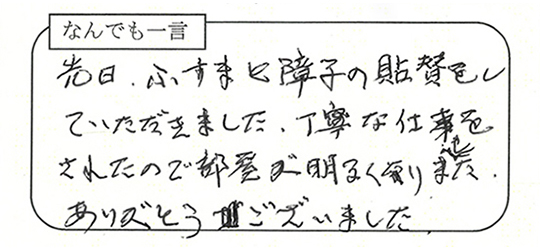 なんでも一言
先日、ふすまと障子の貼賛をし
ていただきました、丁寧な仕事を
されたので部屋が明るく有りました。
ありがとうございました